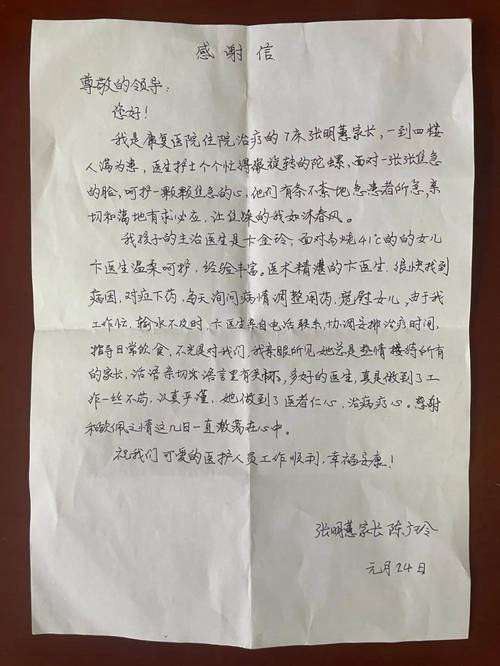 感谢信
尊敬的领导：
您好！
我是康复医院住院治疗的7床张明蕙家长，一到四楼
人满为患，医生护士个个忙得像旋转的陀螺，面对一张张焦急
的脸，呵护一颗颗焦急的心，他们有条不紊地急患者所急，亲
切和蔼地有求必应，让焦燥的我如沐春风。
我孩子的主治医生是卞金玲，面对高烧41℃的的女儿
卞医生温柔呵护，经验丰富。医术精湛的卞医生，很快找到
病因，对症下药，每天询问病情调整用药，慰慰女儿，由于我
工作忙，输水不及时，卞医生亲自电话联系，协调安排治疗时间，
指导日常饮食，不光是对我们，我亲眼所见她总是热情接待所有
的家长，话语亲切实语言里有关怀，多好的医生，真是做到了工
作一丝不苟，认真严谨，她做到了医者仁心，治病疗心。感谢
和钦佩之情这几日一直激荡在心中。
祝我们可爱的医护人员工作顺利，幸福安康！
张明蕙家长 陈广玲
元月24日